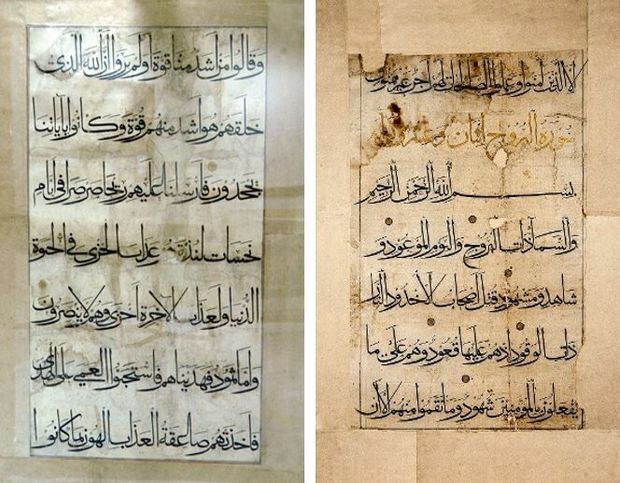 الا الذين امنوا وعملوا الصالحات لهم اجر غير ممنون
سورة البروج اثنان وعشرون
بسم الله الرحمن الرحيم
والسماء ذات البروج واليوم الموعود و
شاهد ومشهود قتل اصحاب الاخدود النار
ذات الوقود اذ هم عليها قعود وهم على ما
يفعلون بالمؤمنين شهود وما نقموا منهم الا ان
وقالوا من اشد منا قوة اولم يروا ان الله الذي
خلقهم هو اشد منهم قوة وكانوا باياتنا
يجحدون فارسلنا عليهم ريحا صرصرا في ايام
نحسات لنذيقهم عذاب الخزي في الحيوة
الدنيا ولعذاب الاخرة اخزى وهم لا ينصرون
واما ثمود فهديناهم فاستحبوا العمى على الهدى
فاخذتهم صاعقة العذاب الهون بما كانوا